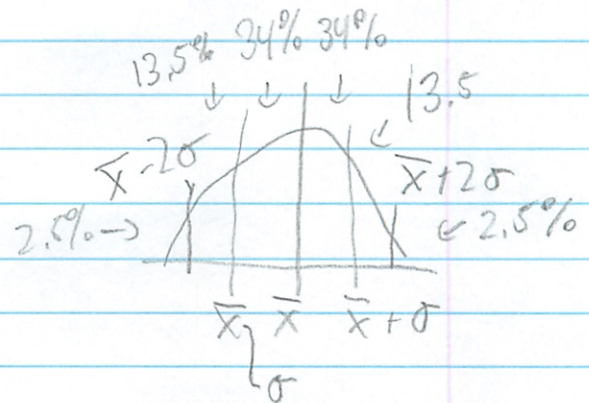 13.5% 34% 34%
13.5
x̄ - 2σ
x̄ + 2σ
2.5% →
← 2.5%
x̄ - σ
x̄
x̄ + σ